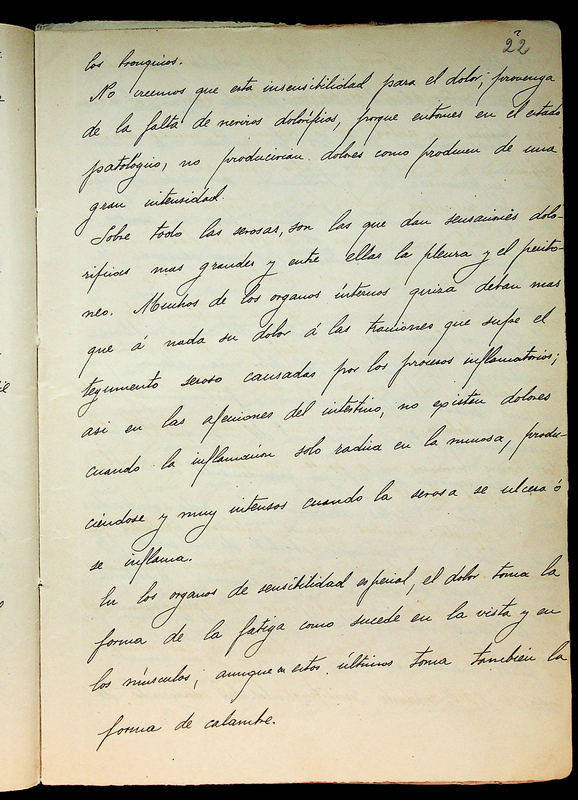 22
los bronquios.
No creemos que esta insensibilidad para el dolor; provenga
de la falta de nervios dolorificos, porque entonces en el estado
patológico, no producirian dolores como producen de una
gran intensidad.
Sobre todo las serosas, son las que dan sensaciones dolo-
rificas mas grandes y entre ellas la pleura y el perito-
neo. Muchos de los organos internos quiza deban mas
que á nada su dolor á las traciones que sufre el
tegumento seroso causadas por los procesos inflamatorios;
asi en las afeciones del intestino, no existen dolores
cuando la inflamacion solo radica en la mucosa, produ-
ciéndose y muy intensos cuando la serosa se ulcera ó
se inflama.
En los organos de sensibilidad especial, el dolor toma la
forma de la fatiga como sucede en la vista y en
los músculos; aunque en estos últimos toma tambien la
forma de calambre.